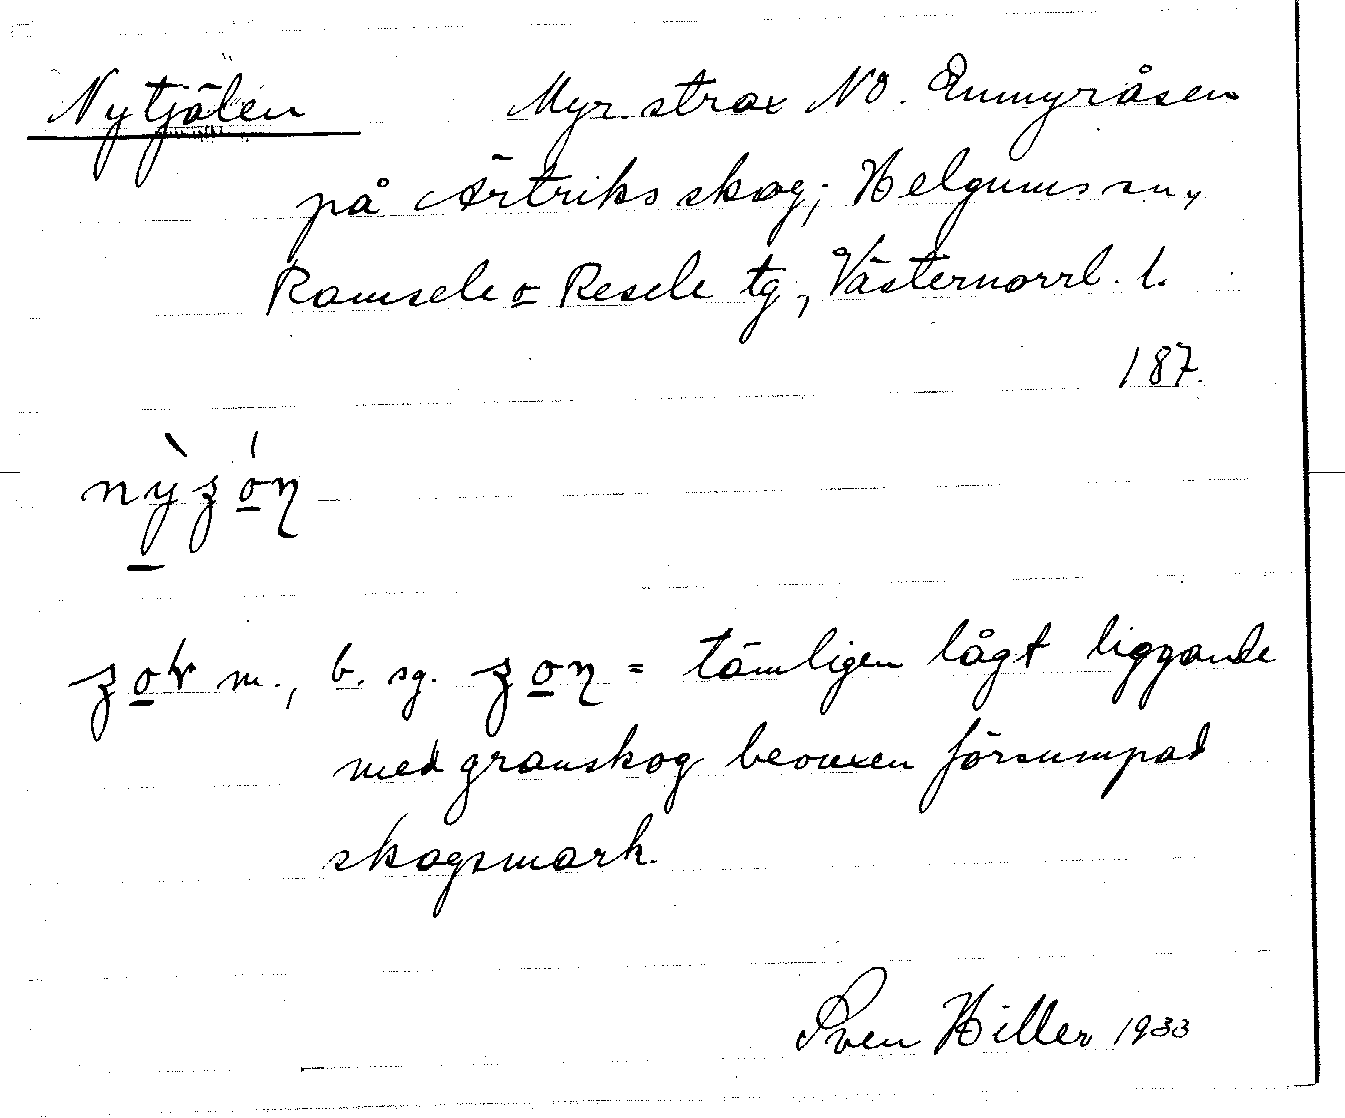 Nytjälen Myr strax NO. Enmyråsen
på Ärtriks skog; Helgums sn,
Ramsele o Resele tg, Västernorrl. l.
187.
m., b. sg. = tämligen lågt liggande
med granskog beouxen försumpad
skogsmark.
Sven Hiller 1933